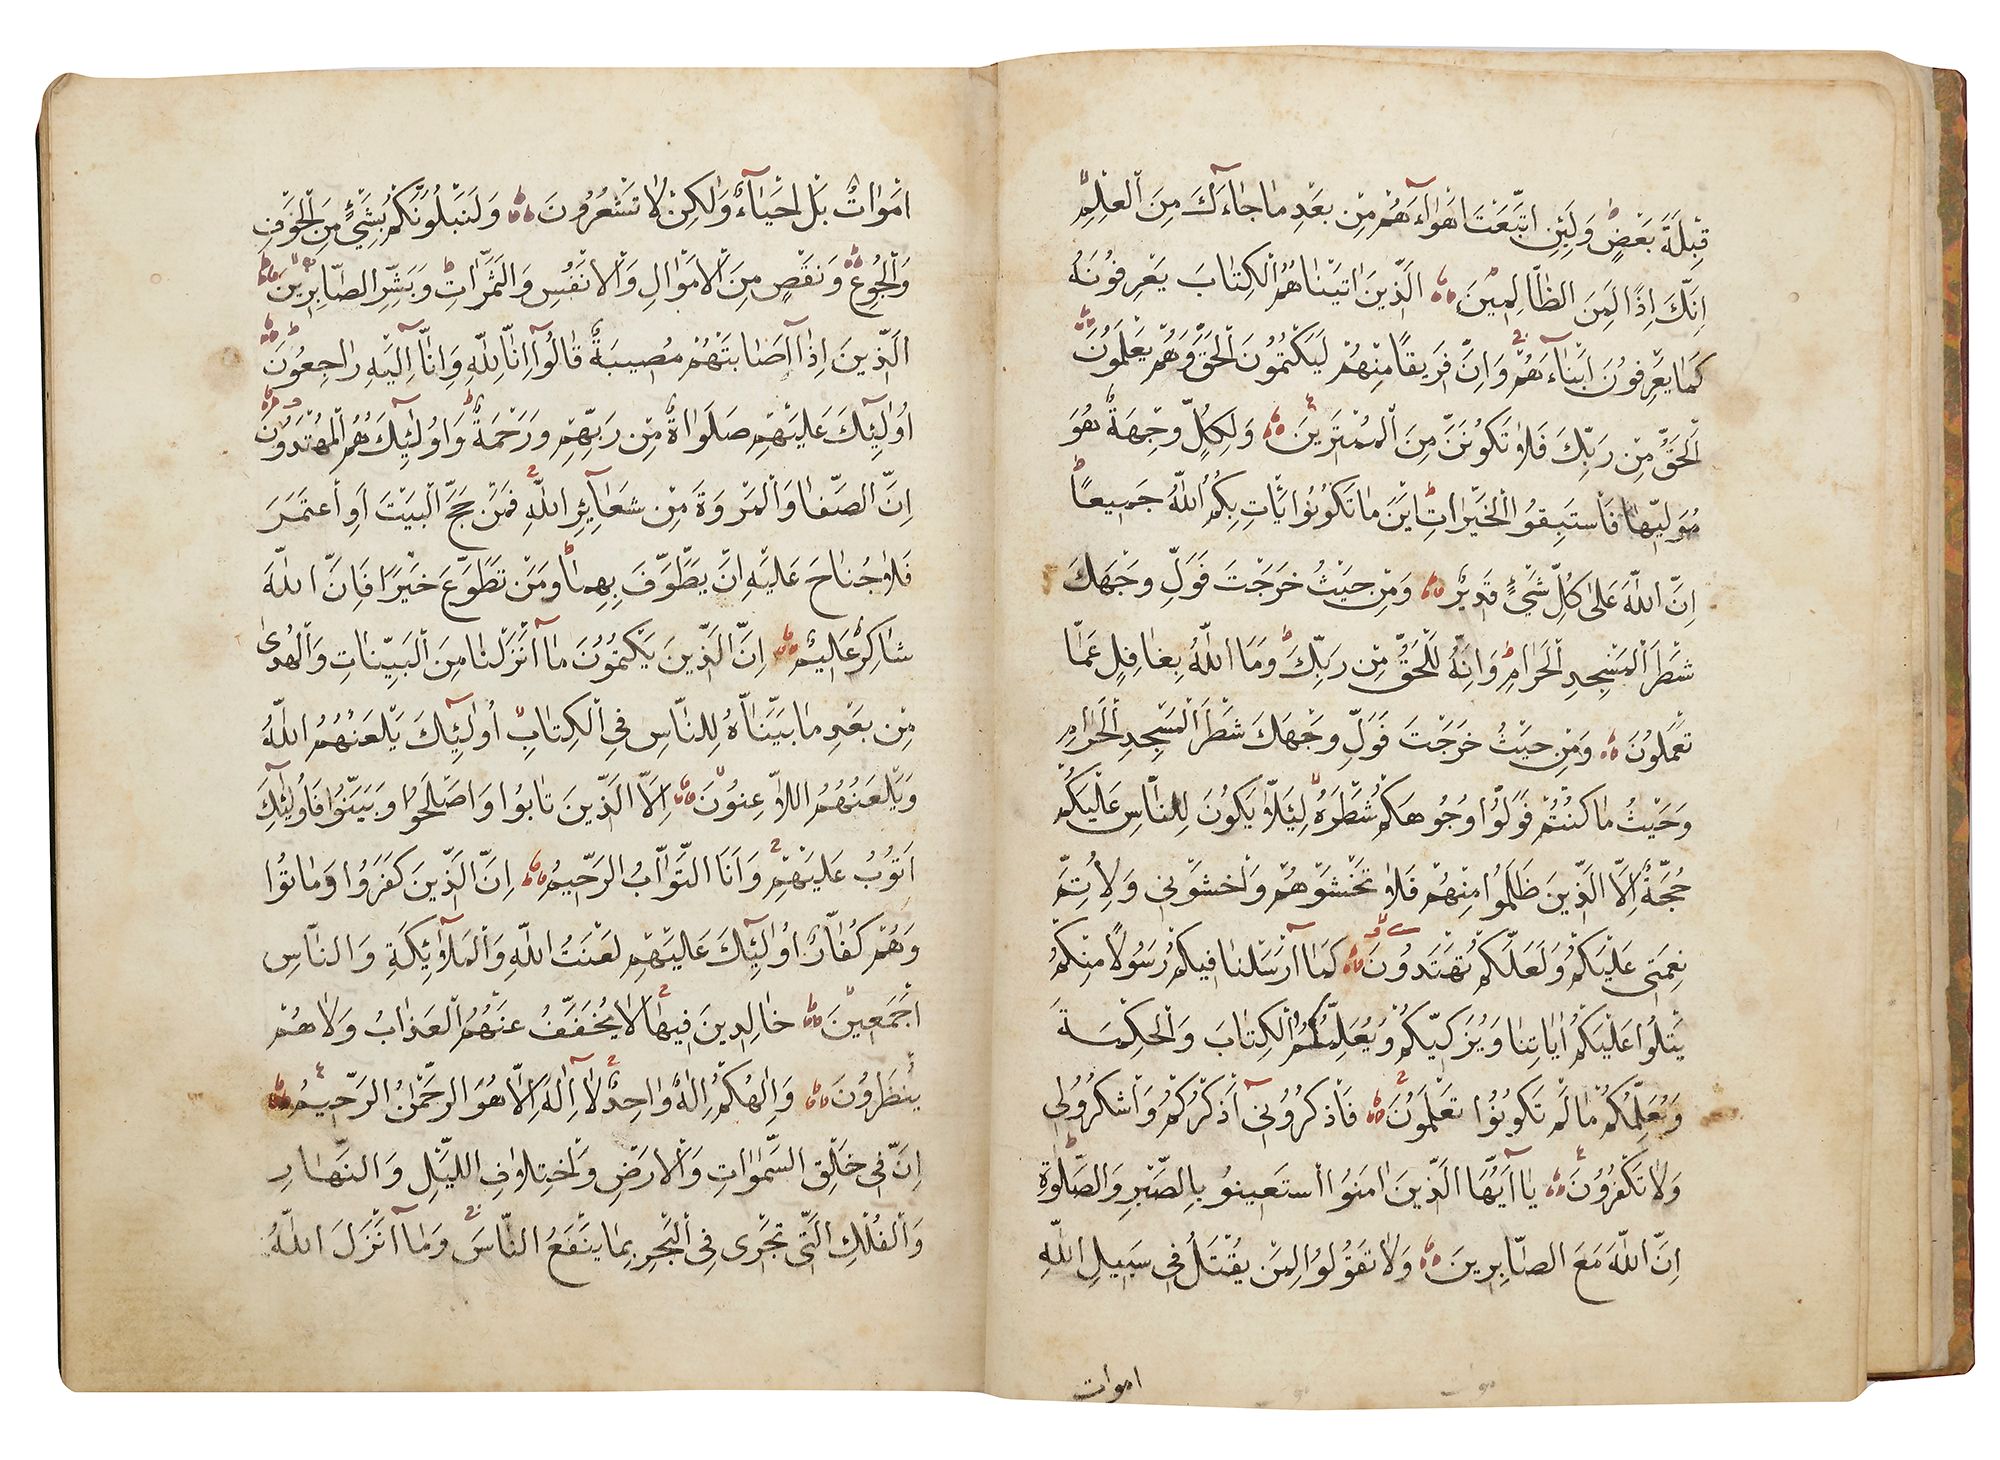 قِبْلَةَ بَعْضٍ وَلَئِنِ اتَّبَعْتَ اَهْوَآءَهُمْ مِنْ بَعْدِ مَا جَآءَكَ مِنَ الْعِلْمِ
اِنَّكَ اِذًا لَمِنَ الظَّالِمِينَ اَلَّذِينَ اٰتَيْنَاهُمُ الْكِتَابَ يَعْرِفُونَهُ
كَمَا يَعْرِفُونَ اَبْنَآءَهُمْ وَاِنَّ فَرِيقًا مِنْهُمْ لَيَكْتُمُونَ الْحَقَّ وَهُمْ يَعْلَمُونَ
اَلْحَقُّ مِنْ رَبِّكَ فَلَا تَكُونَنَّ مِنَ الْمُمْتَرِينَ وَلِكُلٍّ وِجْهَةٌ هُوَ
مُوَلِّيهَا فَاسْتَبِقُوا الْخَيْرَاتِ اَيْنَ مَا تَكُونُوا يَاْتِ بِكُمُ اللّٰهُ جَمِيعًا
اِنَّ اللّٰهَ عَلٰى كُلِّ شَيْءٍ قَدِيرٌ وَمِنْ حَيْثُ خَرَجْتَ فَوَلِّ وَجْهَكَ
شَطْرَ الْمَسْجِدِ الْحَرَامِ وَاِنَّهُ لَلْحَقُّ مِنْ رَبِّكَ وَمَا اللّٰهُ بِغَافِلٍ عَمَّا
تَعْمَلُونَ وَمِنْ حَيْثُ خَرَجْتَ فَوَلِّ وَجْهَكَ شَطْرَ الْمَسْجِدِ الْحَرَامِ
وَحَيْثُ مَا كُنْتُمْ فَوَلُّوا وُجُوهَكُمْ شَطْرَهُ لِئَلَّا يَكُونَ لِلنَّاسِ عَلَيْكُمْ
حُجَّةٌ اِلَّا الَّذِينَ ظَلَمُوا مِنْهُمْ فَلَا تَخْشَوْهُمْ وَاخْشَوْنِي وَلِاُتِمَّ
نِعْمَتِي عَلَيْكُمْ وَلَعَلَّكُمْ تَهْتَدُونَ كَمَآ اَرْسَلْنَا فِيكُمْ رَسُولًا مِنْكُمْ
يَتْلُوا عَلَيْكُمْ اٰيَاتِنَا وَيُزَكِّيكُمْ وَيُعَلِّمُكُمُ الْكِتَابَ وَالْحِكْمَةَ
وَيُعَلِّمُكُمْ مَا لَمْ تَكُونُوا تَعْلَمُونَ فَاذْكُرُونِي اَذْكُرْكُمْ وَاشْكُرُوا لِي
وَلَا تَكْفُرُونَ يَآ اَيُّهَا الَّذِينَ اٰمَنُوا اسْتَعِينُوا بِالصَّبْرِ وَالصَّلٰوةِ
اِنَّ اللّٰهَ مَعَ الصَّابِرِينَ وَلَا تَقُولُوا لِمَنْ يُقْتَلُ فِي سَبِيلِ اللّٰهِ
اموات
اَمْوَاتٌ بَلْ اَحْيَآءٌ وَلٰكِنْ لَا تَشْعُرُونَ وَلَنَبْلُوَنَّكُمْ بِشَيْءٍ مِنَ الْخَوْفِ
وَالْجُوعِ وَنَقْصٍ مِنَ الْاَمْوَالِ وَالْاَنْفُسِ وَالثَّمَرَاتِ وَبَشِّرِ الصَّابِرِينَ
اَلَّذِينَ اِذَآ اَصَابَتْهُمْ مُصِيبَةٌ قَالُوآ اِنَّا لِلّٰهِ وَاِنَّآ اِلَيْهِ رَاجِعُونَ
اُولٰٓئِكَ عَلَيْهِمْ صَلَوَاةٌ مِنْ رَبِّهِمْ وَرَحْمَةٌ وَاُولٰٓئِكَ هُمُ الْمُهْتَدُونَ
اِنَّ الصَّفَا وَالْمَرْوَةَ مِنْ شَعَآئِرِ اللّٰهِ فَمَنْ حَجَّ الْبَيْتَ اَوِ اعْتَمَرَ
فَلَا جُنَاحَ عَلَيْهِ اَنْ يَطَّوَّفَ بِهِمَا وَمَنْ تَطَوَّعَ خَيْرًا فَاِنَّ اللّٰهَ
شَاكِرٌ عَلِيمٌ اِنَّ الَّذِينَ يَكْتُمُونَ مَآ اَنْزَلْنَا مِنَ الْبَيِّنَاتِ وَالْهُدٰى
مِنْ بَعْدِ مَا بَيَّنَّاهُ لِلنَّاسِ فِي الْكِتَابِ اُولٰٓئِكَ يَلْعَنُهُمُ اللّٰهُ
وَيَلْعَنُهُمُ اللَّاعِنُونَ اِلَّا الَّذِينَ تَابُوا وَاَصْلَحُوا وَبَيَّنُوا فَاُولٰٓئِكَ
اَتُوبُ عَلَيْهِمْ وَاَنَا التَّوَّابُ الرَّحِيمُ اِنَّ الَّذِينَ كَفَرُوا وَمَاتُوا
وَهُمْ كُفَّارٌ اُولٰٓئِكَ عَلَيْهِمْ لَعْنَتُ اللّٰهِ وَالْمَلٰٓئِكَةِ وَالنَّاسِ
اَجْمَعِينَ خَالِدِينَ فِيهَا لَا يُخَفَّفُ عَنْهُمُ الْعَذَابُ وَلَا هُمْ
يُنْظَرُونَ وَاِلٰهُكُمْ اِلٰهٌ وَاحِدٌ لَآ اِلٰهَ اِلَّا هُوَ الرَّحْمٰنُ الرَّحِيمُ
اِنَّ فِي خَلْقِ السَّمٰوَاتِ وَالْاَرْضِ وَاخْتِلَافِ اللَّيْلِ وَالنَّهَارِ
وَالْفُلْكِ الَّتِي تَجْرِي فِي الْبَحْرِ بِمَا يَنْفَعُ النَّاسَ وَمَآ اَنْزَلَ اللّٰهُ